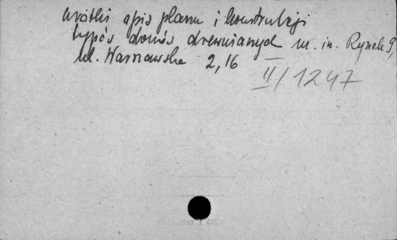 krótki opis planu i konstrukcji
typów domów drewnianych m. in. Rynek 9,
ul. Warszawska 2, 16
II/1247